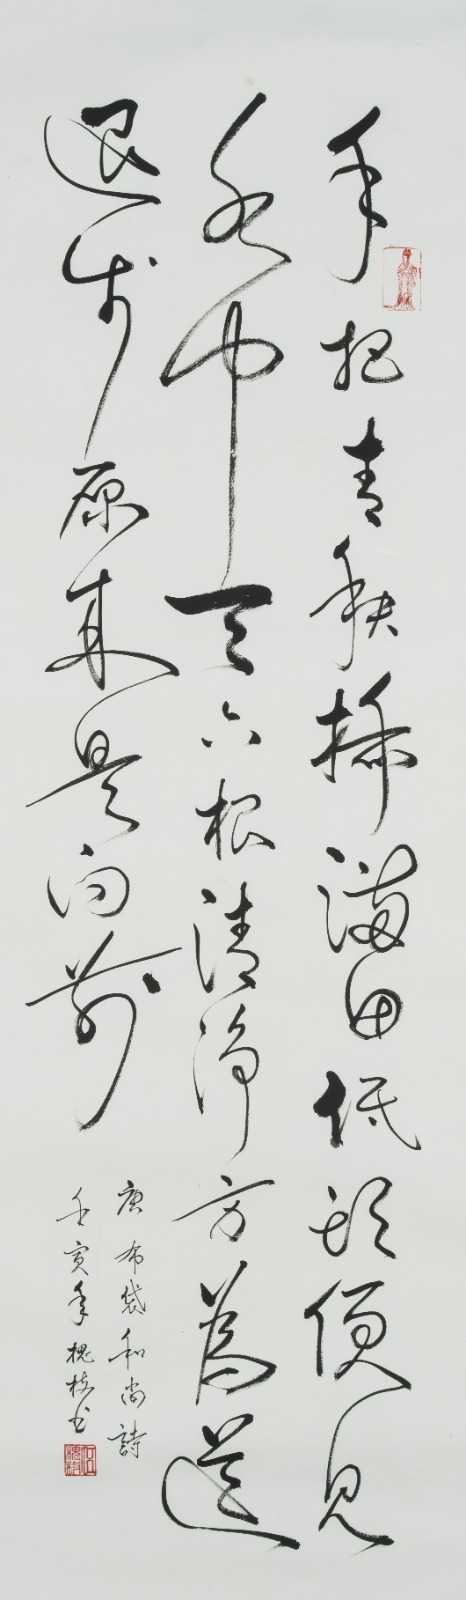 手把青秧插滿田低頭便見
水中天六根清淨方為道
退步原來是向前
唐布袋和尚詩
壬寅年槐枝书